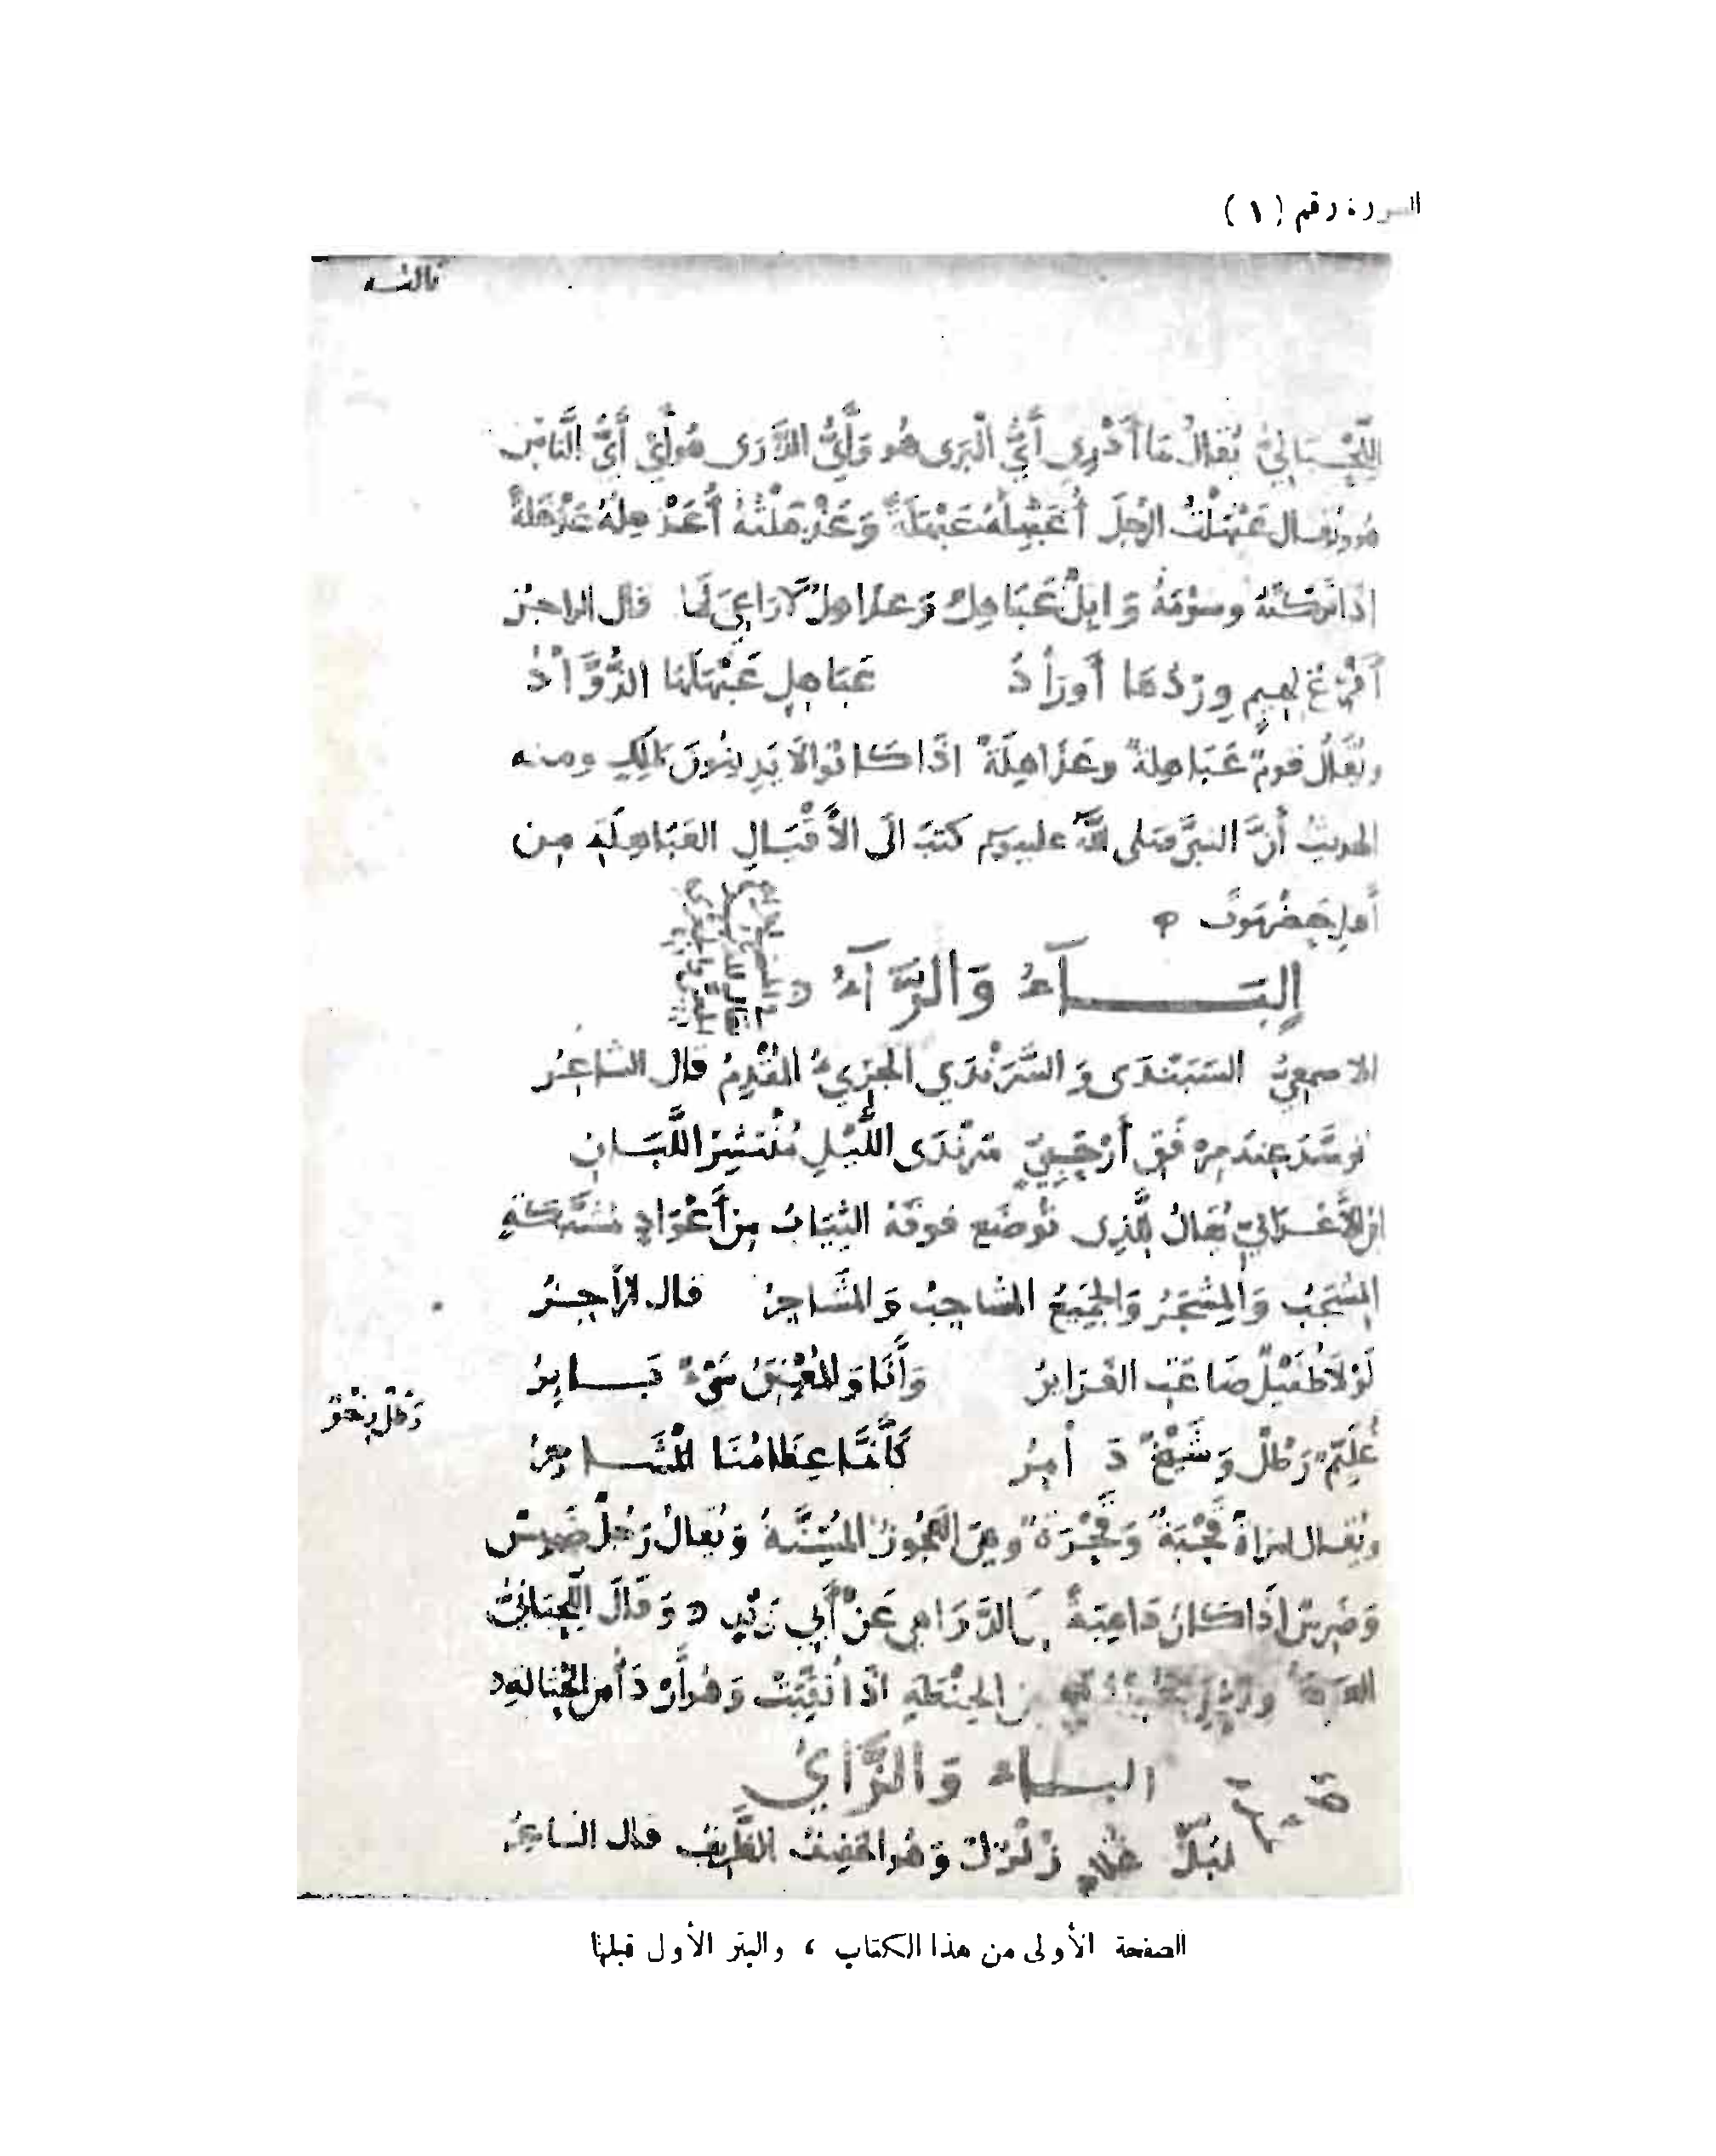 الصورة رقم (١)
ثالثه
اللِّحْيَانِيُّ يُقَالُ مَا أَدْرِي أَيُّ الْبَرَى هُو وَأَيُّ الْوَرَى هُو أَيْ أَيُّ النَّاسِ
هُو ويُقال عَبْهَلْتُ الرَّجُلَ أُعَبْهِلُهُ عَبْهَلَةً وَعَذْهَلْتُهُ أُعَذْهِلُهُ عَذْهَلَةً
اذَا تَركتَهُ وسَوْمَهُ وَابِلٌ عَبَاهِلُ وَعذَاهِلُ لَا رَاعِيَ لَهَا قال الراجز
أَفْرِغْ لِهِيمٍ وِرْدُهَا أَورَادُ عَبَاهِلٍ عَبْهَلَهَا الذُّوَّادُ
ويُقَالُ قومٌ عَبَاهِلةٌ وعَذَاهِلَةٌ اذَا كَانُوا لَا يَدِينُونَ لِمَلِكٍ ومنه
الحديثُ أَنَّ النبيَّ صَلى اللَّه عليه وسلم كتبَ الَى الأَقْيَالِ العَبَاهِلَةِ مِن
أَهلِ حَضْرَمَوتَ
البَاءُ وَالرَّاءُ
الاصمعيُّ السَّبَنْدَى وَالسَّرَنْدَى الجَرِيءُ المُقْدِمُ قال الشاعِرُ
تَوسَّدَ عِندَ مِرْفَقِ أَرْحَبِيٍّ سَرَنْدَى اللَّيْلِ مُنْتَشِرَ اللَّبَانِ
ابن الأَعْرَابيّ يُقالُ لِلَّذِى تُوضَع فوقَهُ الثِّيَابُ مِن أَعْوَادٍ مُشَبَّكَةٍ
المِشْجَبُ وَالمِشْجَرُ وَالجَمِيعُ المشَاجِبُ وَالمَشَاجِرُ قال الرَّاجِزُ
لَوْلَا طُفَيْلٌ ضَاعَتِ الغَرَائِرُ وَأَنَا وَالمُعْتِقُ شَيْءٌ بَايِرُ
غُلَيِّمٌ رَطْلٌ وَشَيْخٌ دَامِرُ كَأَنَّمَا عِظَامُنَا المَشَاجِرُ
ويُقال امرَاةٌ قَحْبَةٌ وَقَحْرَةٌ وهِيَ العَجُوزُ المُسِنَّةُ وَيُقالُ رَجُلٌ ضَبِسٌ
وَضَرِسٌ اذَا كانَ دَاهِيَةً مِن الدَّوَاهِي عَنْ أَبِي زَيْدٍ وَقَالَ اللِّحْيَانيُّ
مِنَ الحِنْطَةِ اذَا نُقِّيَتْ
الباء وَالزَّاي
زُلْزُلٌ وَهُو الخَفِيفُ الظَّرِيفُ قال الشاعِرُ
الصفحة الأولى من هذا الكتاب ، والبتر الأول قبلها